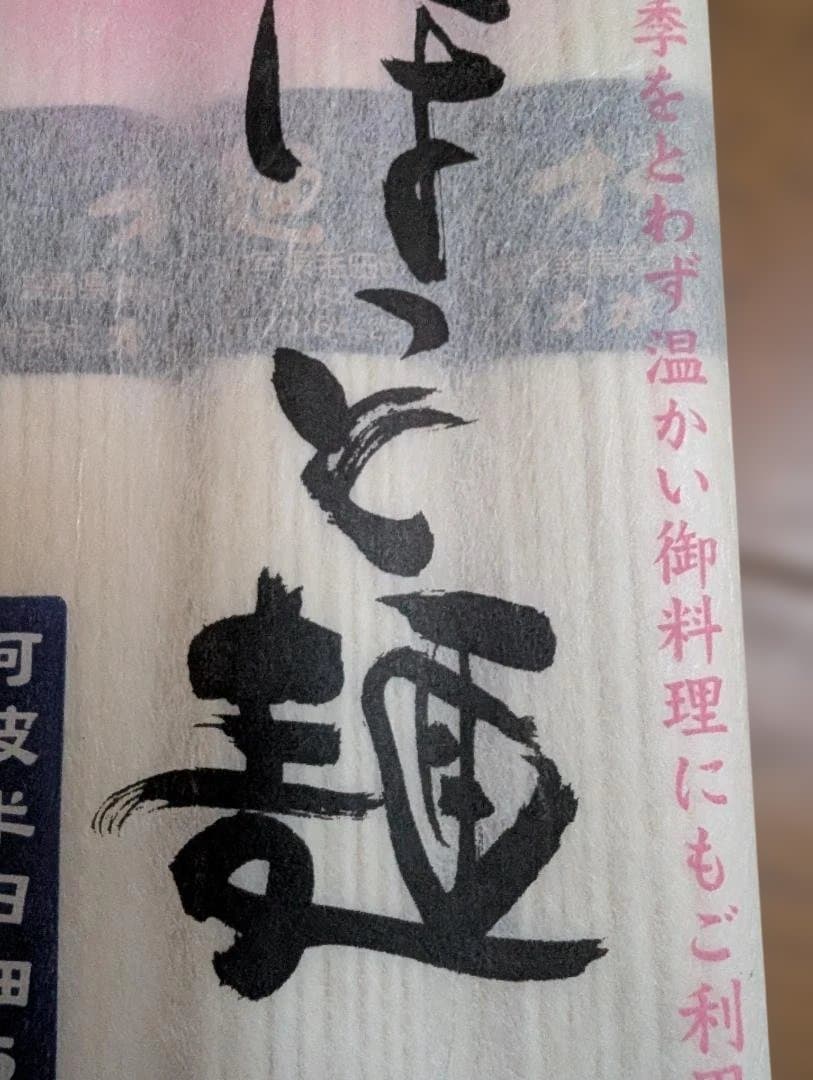 季をとわず温かい御料理にもご利用
ほっと麺
阿波半田